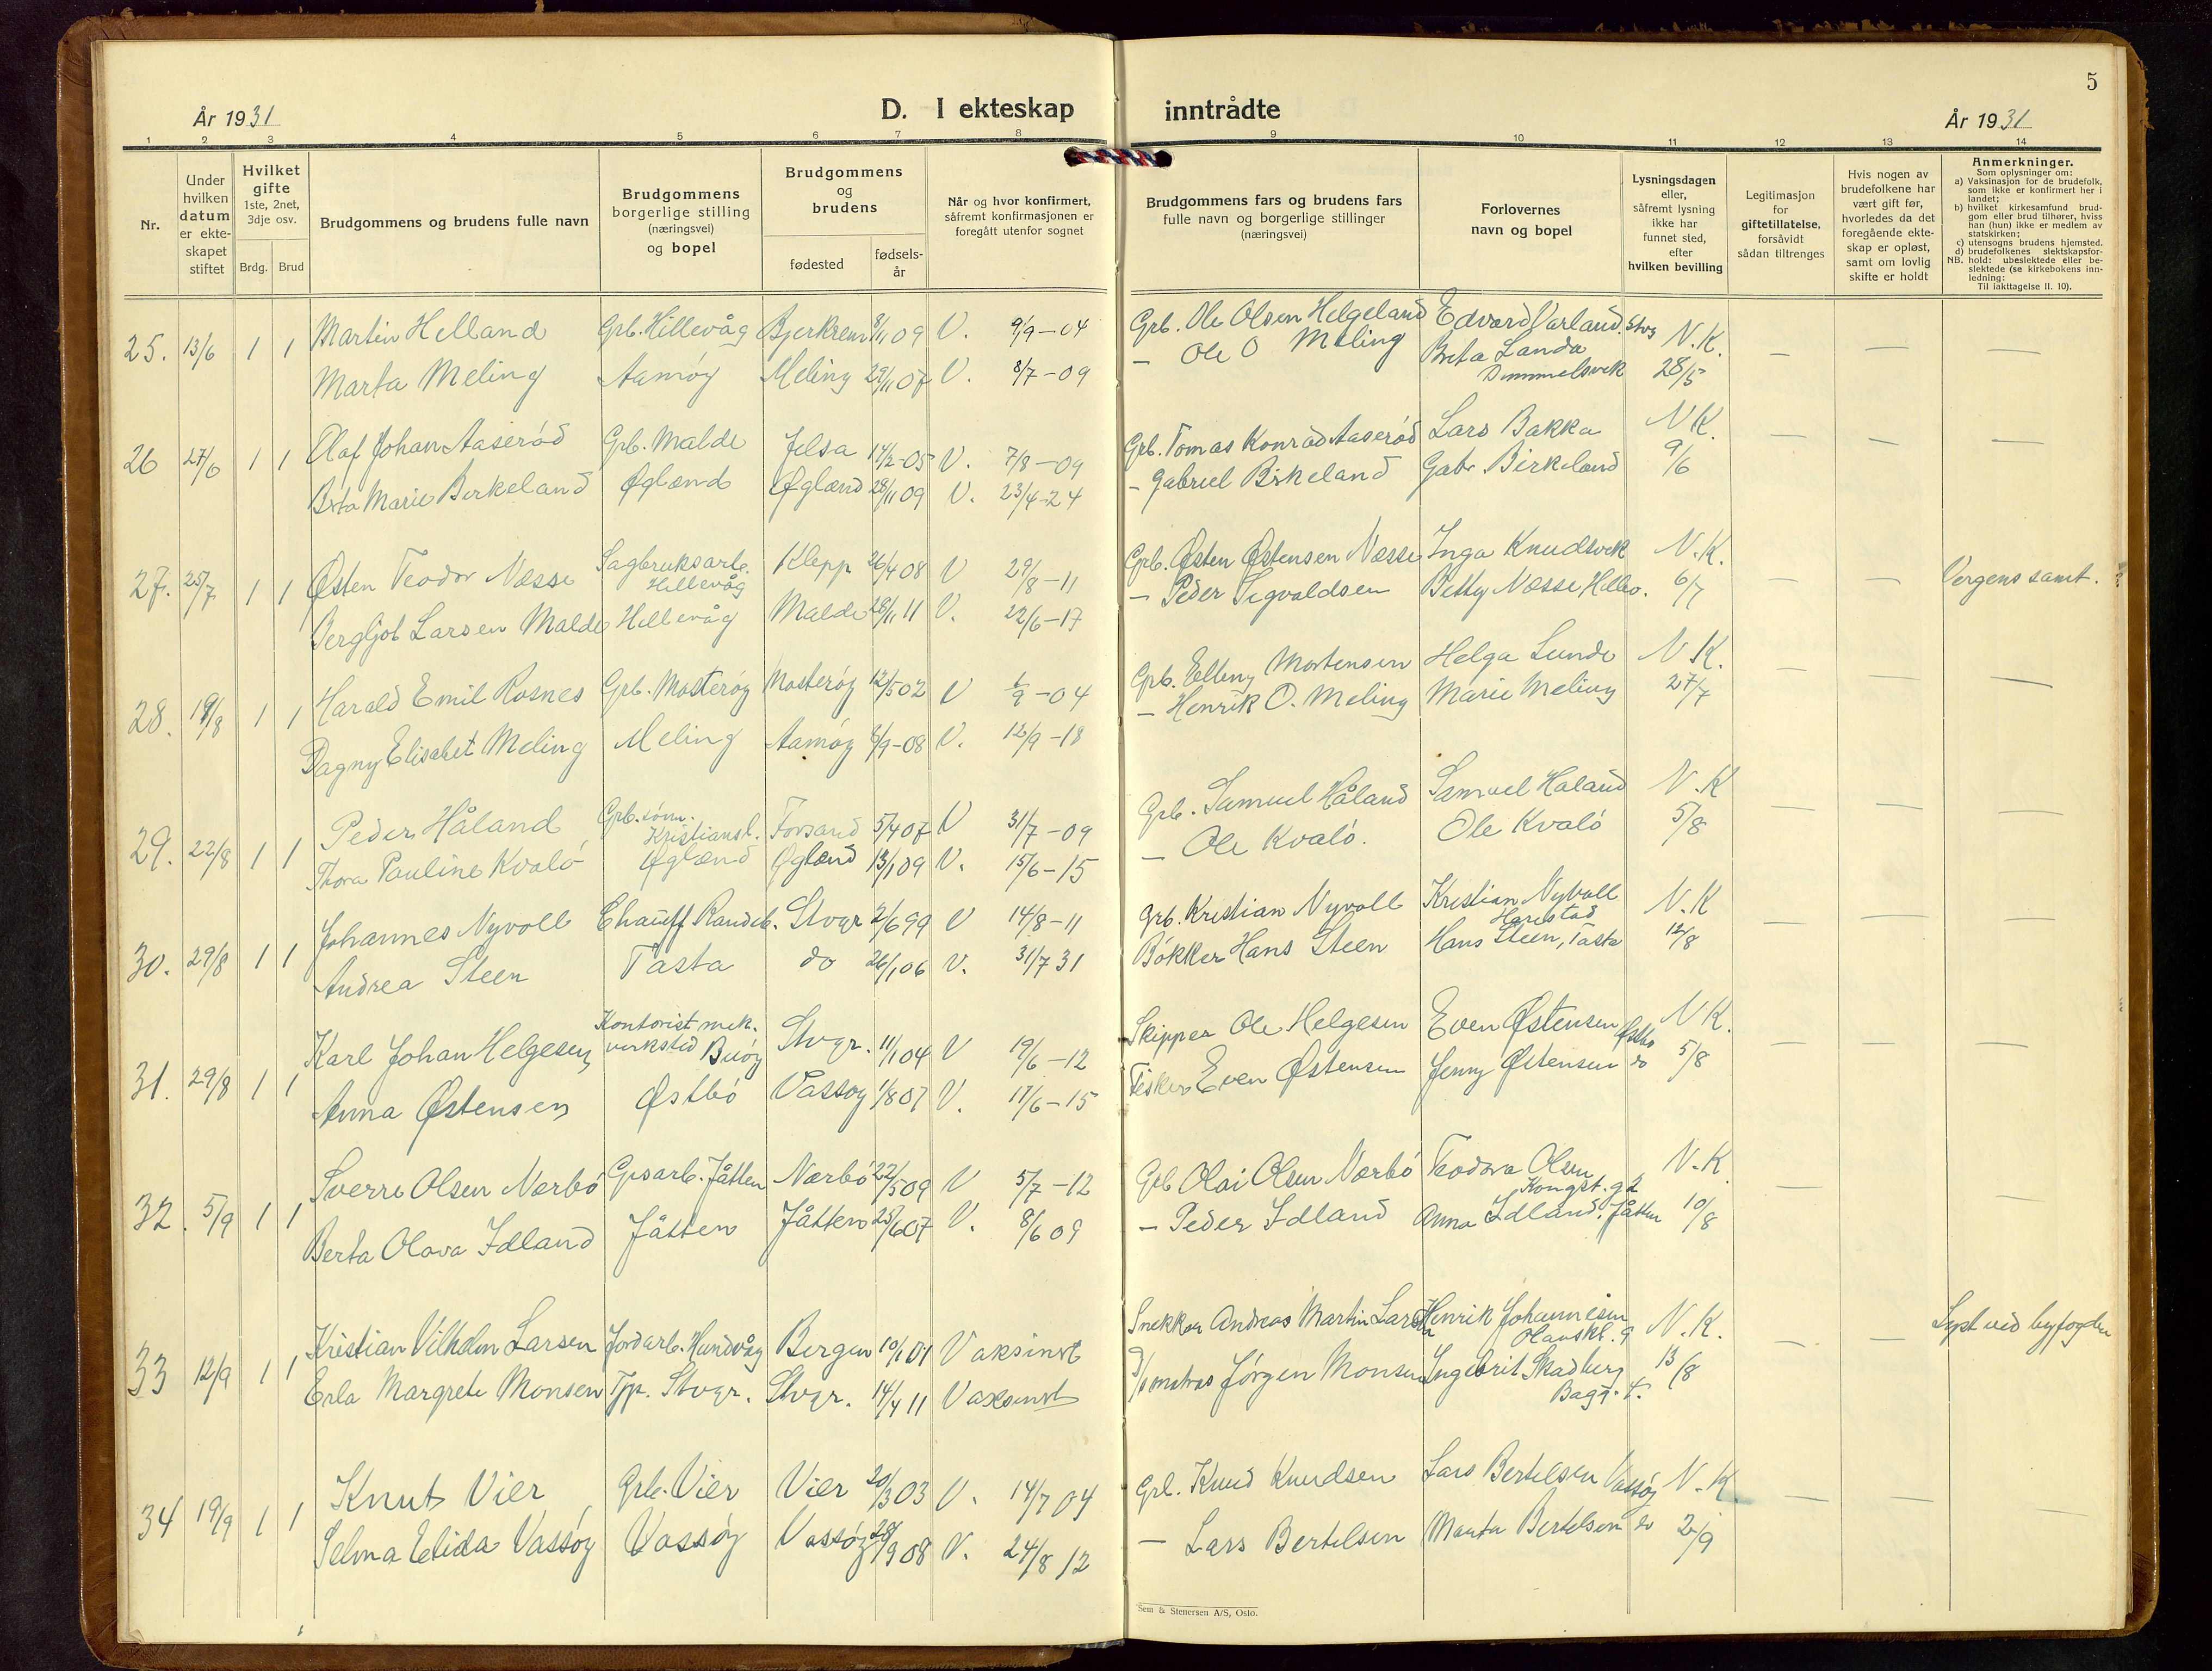 5
År 1931
D. I ekteskap inntrådte
År 1931
1 2 3 4 5 6 7 8 9 10 11 12 13 14
Nr.
Under hvilken datum er ekte-skapet stiftet
Hvilket gifte 1ste, 2net, 3dje osv.
Brdg. Brud
Brudgommens og brudens fulle navn
Brudgommens borgerlige stilling (næringsvei) og bopel
Brudgommens og brudens
fødested
fødsels-år
Når og hvor konfirmert, såfremt konfirmasjonen er foregått utenfor sognet
Brudgommens fars og brudens fars fulle navn og borgerlige stillinger (næringsvei)
Forlovernes navn og bopel
Lysningsdagen eller, såfremt lysning ikke har funnet sted, efter hvilken bevilling
Legitimasjon for giftetillatelse, forsåvidt sådan tiltrenges
Hvis nogen av brudefolkene har vært gift før, hvorledes da det foregående ekte-skap er opløst, samt om lovlig skifte er holdt
Anmerkninger.
Som oplysninger om:
a) Vaksinasjon for de brudefolk, som ikke er konfirmert her i landet;
b) hvilket kirkesamfund brud-gom eller brud tilhører, hviss han (hun) ikke er medlem av statskirken;
c) utensogns brudens hjemsted.
d) brudefolkenes slektskapsfor-hold: ubeslektede eller be-slektede (se kirkebokens inn-ledning:
NB.
Til iakttagelse II. 10).
25. 13/6 1 1 Martin Helland Grb. Hillevåg Bjerkrem 8/11 09 V. 9/9-04 Grb. Ole Olsen Helgeland Edvard Varland. Stvg N.K.
Marta Meling Aamøy Meling 29/11 07 V. 8/7-09 – Ole O Meling Berta Landa 28/5 – – –
26 27/6 1 1 Olaf Johan Aaserød Grb. Malde Jelsa 14/2-05 V. 7/8-09 Grb. Tomas Konrad Aaserød Lars Bakka N.K.
Brta Marie Birkeland Øglænd Øglænd 28/11 09 V. 23/4-24 – Gabriel Birkeland Gabr. Birkeland 9/6 – – –
27. 25/7 1 1 Østen Teodor Næsse Sagbruksarb. Hillevåg Klepp 26/4 08 V 29/8-11 Grb. Østen Østensen Næsse Inga Knudsvik N.K.
Bergljot Larsen Malde Hillevåg Malde 28/11 11 V. 22/6-17 – Peder Sigvaldsen Betty Næsse, Hillev. 6/7 – – Vergens samt.
28. 19/8 1 1 Harald Emil Rosnes Grb. Mosterøy Mosterøy 12/5 02 V 1/9-04 Grb. Elling Mortensen Helga Lunde N.K.
Dagny Elisabet Meling Meling Aamøy 8/9-08 V. 12/9-18 – Henrik O. Meling Marie Meling 27/7 – –
29. 22/8 1 1 Peder Håland Grb.sønn. Kristiansl. Forsand 5/4 07 V 31/7-09 Grb. Samuel Håland Samuel Håland N.K
Thora Pauline Kvalø Øglænd Øglænd 13/1 09 V. 15/6-15 – Ole Kvalø. Ole Kvalø 5/8 – – –
30. 29/8 1 1 Johannes Nyvoll Chauff. Randeb. Stvgr 2/6 99 V 14/8-11 Grb. Kristian Nyvoll Kristian Nyvoll Harestad N.K
Andrea Steen Tasta do 26/1 06 V. 31/7 31 Bøkker Hans Steen Hans Steen, Tasta 12/8 – – –
31. 29/8 1 1 Karl Johan Helgesen Kontorist mek. verksted Buøy Stvgr. 11/1 04 V 19/6-12 Skipper Ole Helgesen Even Østensen Østbø N.K.
Anna Østensen Østbø Vassøy 1/8 07 V. 17/6-15 Fisker Even Østensen Jenny Østensen do 5/8 – – –
32. 5/9 1 1 Sverre Olsen Nærbø Grsarb. Jåtten Nærbø 22/5 09 V 5/7-12 Grb Olai Olsen Nærbø Teodora Olsen Kongst.g 2 N.K
Berta Olava Idland Jåtten Jåtten 25/6 07 V. 8/6 09 – Peder Idland Anna Idland. Jåtten 10/8 – –
33 12/9 1 1 Kristian Vilhelm Larsen Jordarb. Hundvåg Bergen 10/1 01 Vaksinert Snekker Andreas Martin Larsen Henrik Johannesen Olavskl. 9 N.K.
Erla Margrete Monsen Tjp. Stvgr. Stvgr. 14/4 11 Vaksinert matros Jørgen Monsen Ingebrit Skadberg Bagg. t. 13/8 – – Lyst ved byfogden
34 19/9 1 1 Knut Vier Grb. Vier Vier 20/3 03 V. 14/7 04 Grb. Knud Knudsen Lars Bertelsen Vassøy N.K
Selma Elida Vassøy Vassøy Vassøy 28/9 08 V. 24/8 12 – Lars Bertelsen Marta Bertelsen do 2/9 – – –
Sem & Stenersen A/S, Oslo.